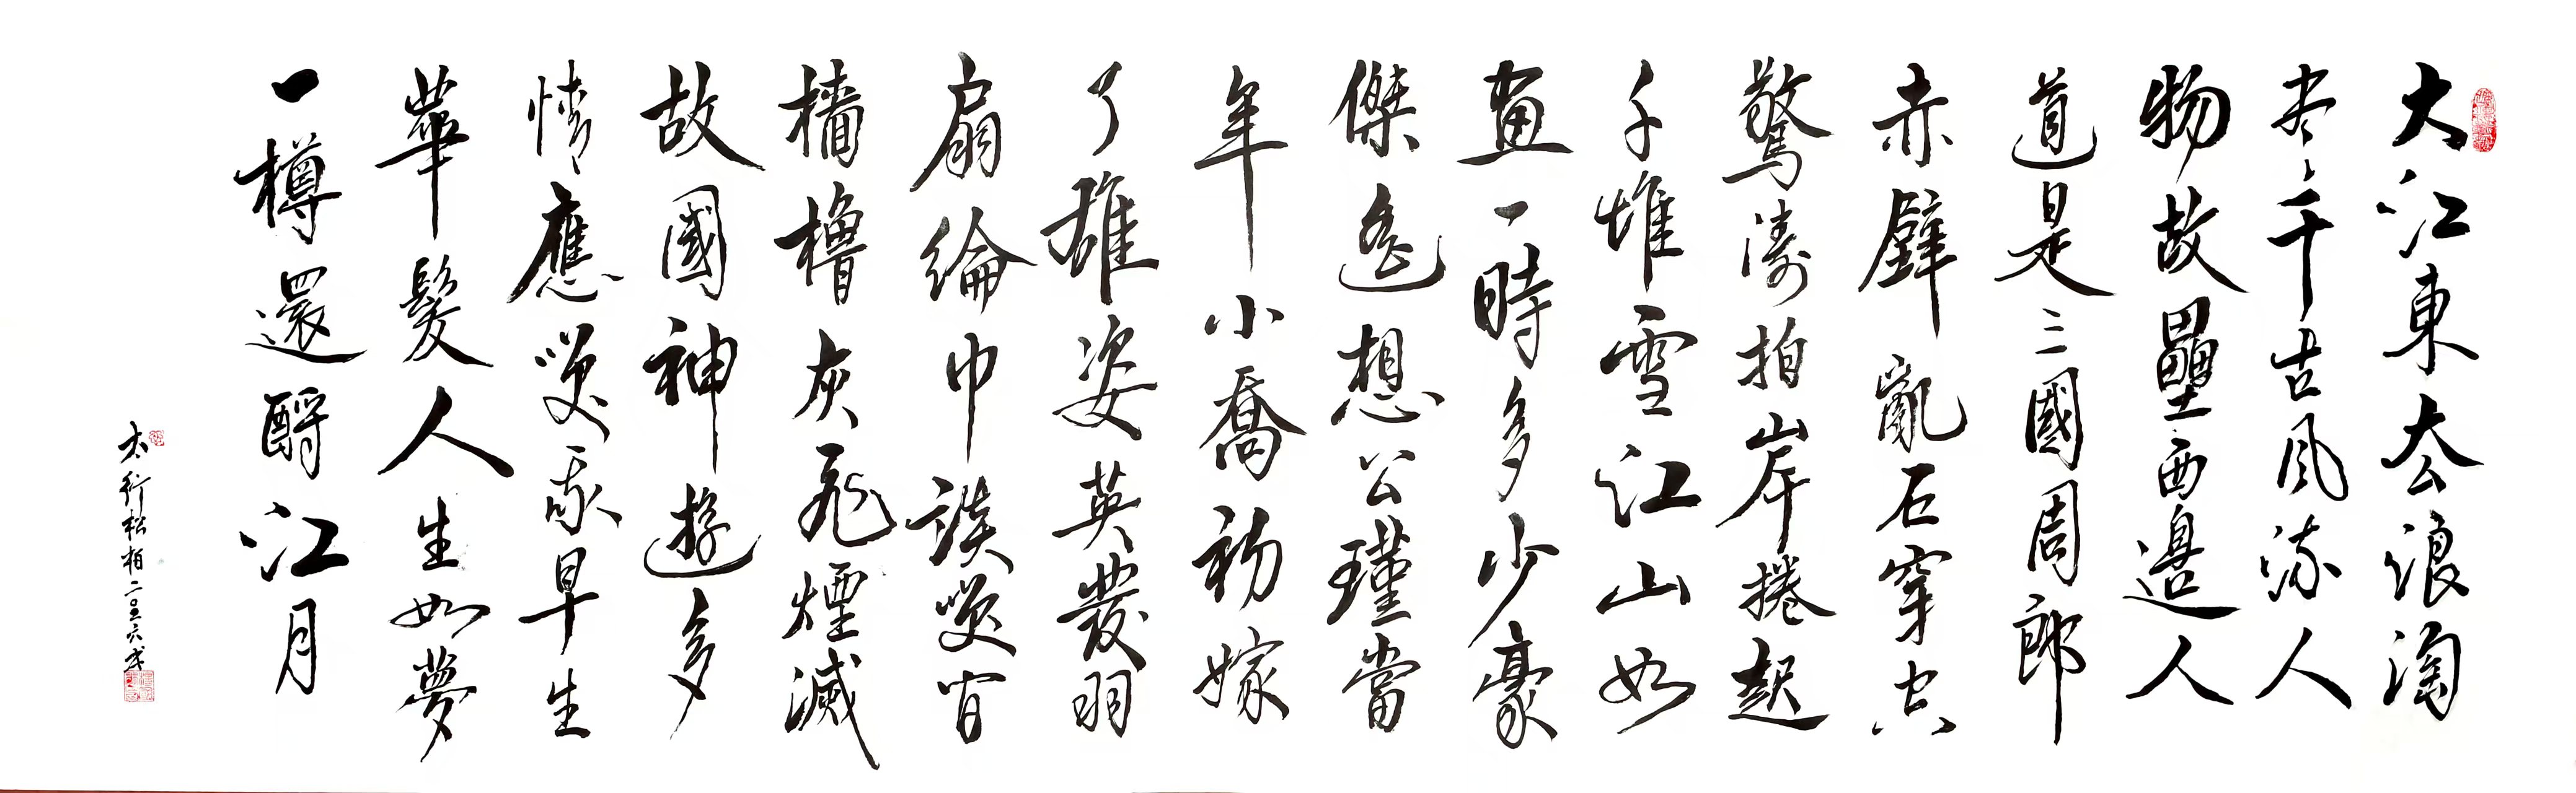 大江東去浪淘
尽千古風流人
物故壘西邊人
道是三國周郎
赤壁亂石穿空
驚濤拍岸捲起
千堆雪江山如
畫一時多少豪
傑遙想公瑾當
年小喬初嫁
了雄姿英發羽
扇綸巾談笑间
檣櫓灰飛煙滅
故國神遊多
情應笑我早生
華髮人生如夢
一樽還酹江月
太行松柏二〇二六